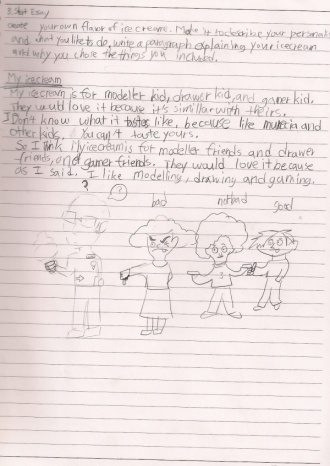 8. Short Essay
create your own flavor of ice cream. Make it to describe your personality
and what you like to do, write a paragraph explaining your icecream
and why you chose the things you included.
My icecream
My icecream is for modeller kid, drawer kid, and gamer kid.
They would love it because it's simillar with theirs.
I Don't know what it tastes like, because like and
other kids, You can't taste yours.
So I think My icecream is for modeller friends and drawer
friends, and gamer friends. They would love it because
as I said. I like modeling, drawing and gaming.
?
bad
not bad
good